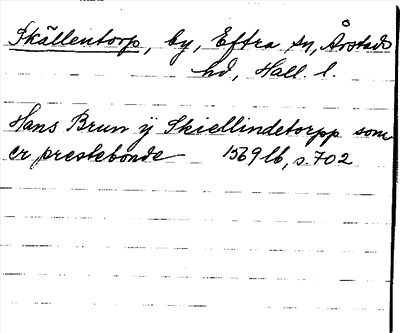 Skällentorp, by, Eftra sn, Årstads
hd, Hall. l.
Hans Brun ÿ Skiellindetorpp som
er prestebonde 1569 lb, s. 702